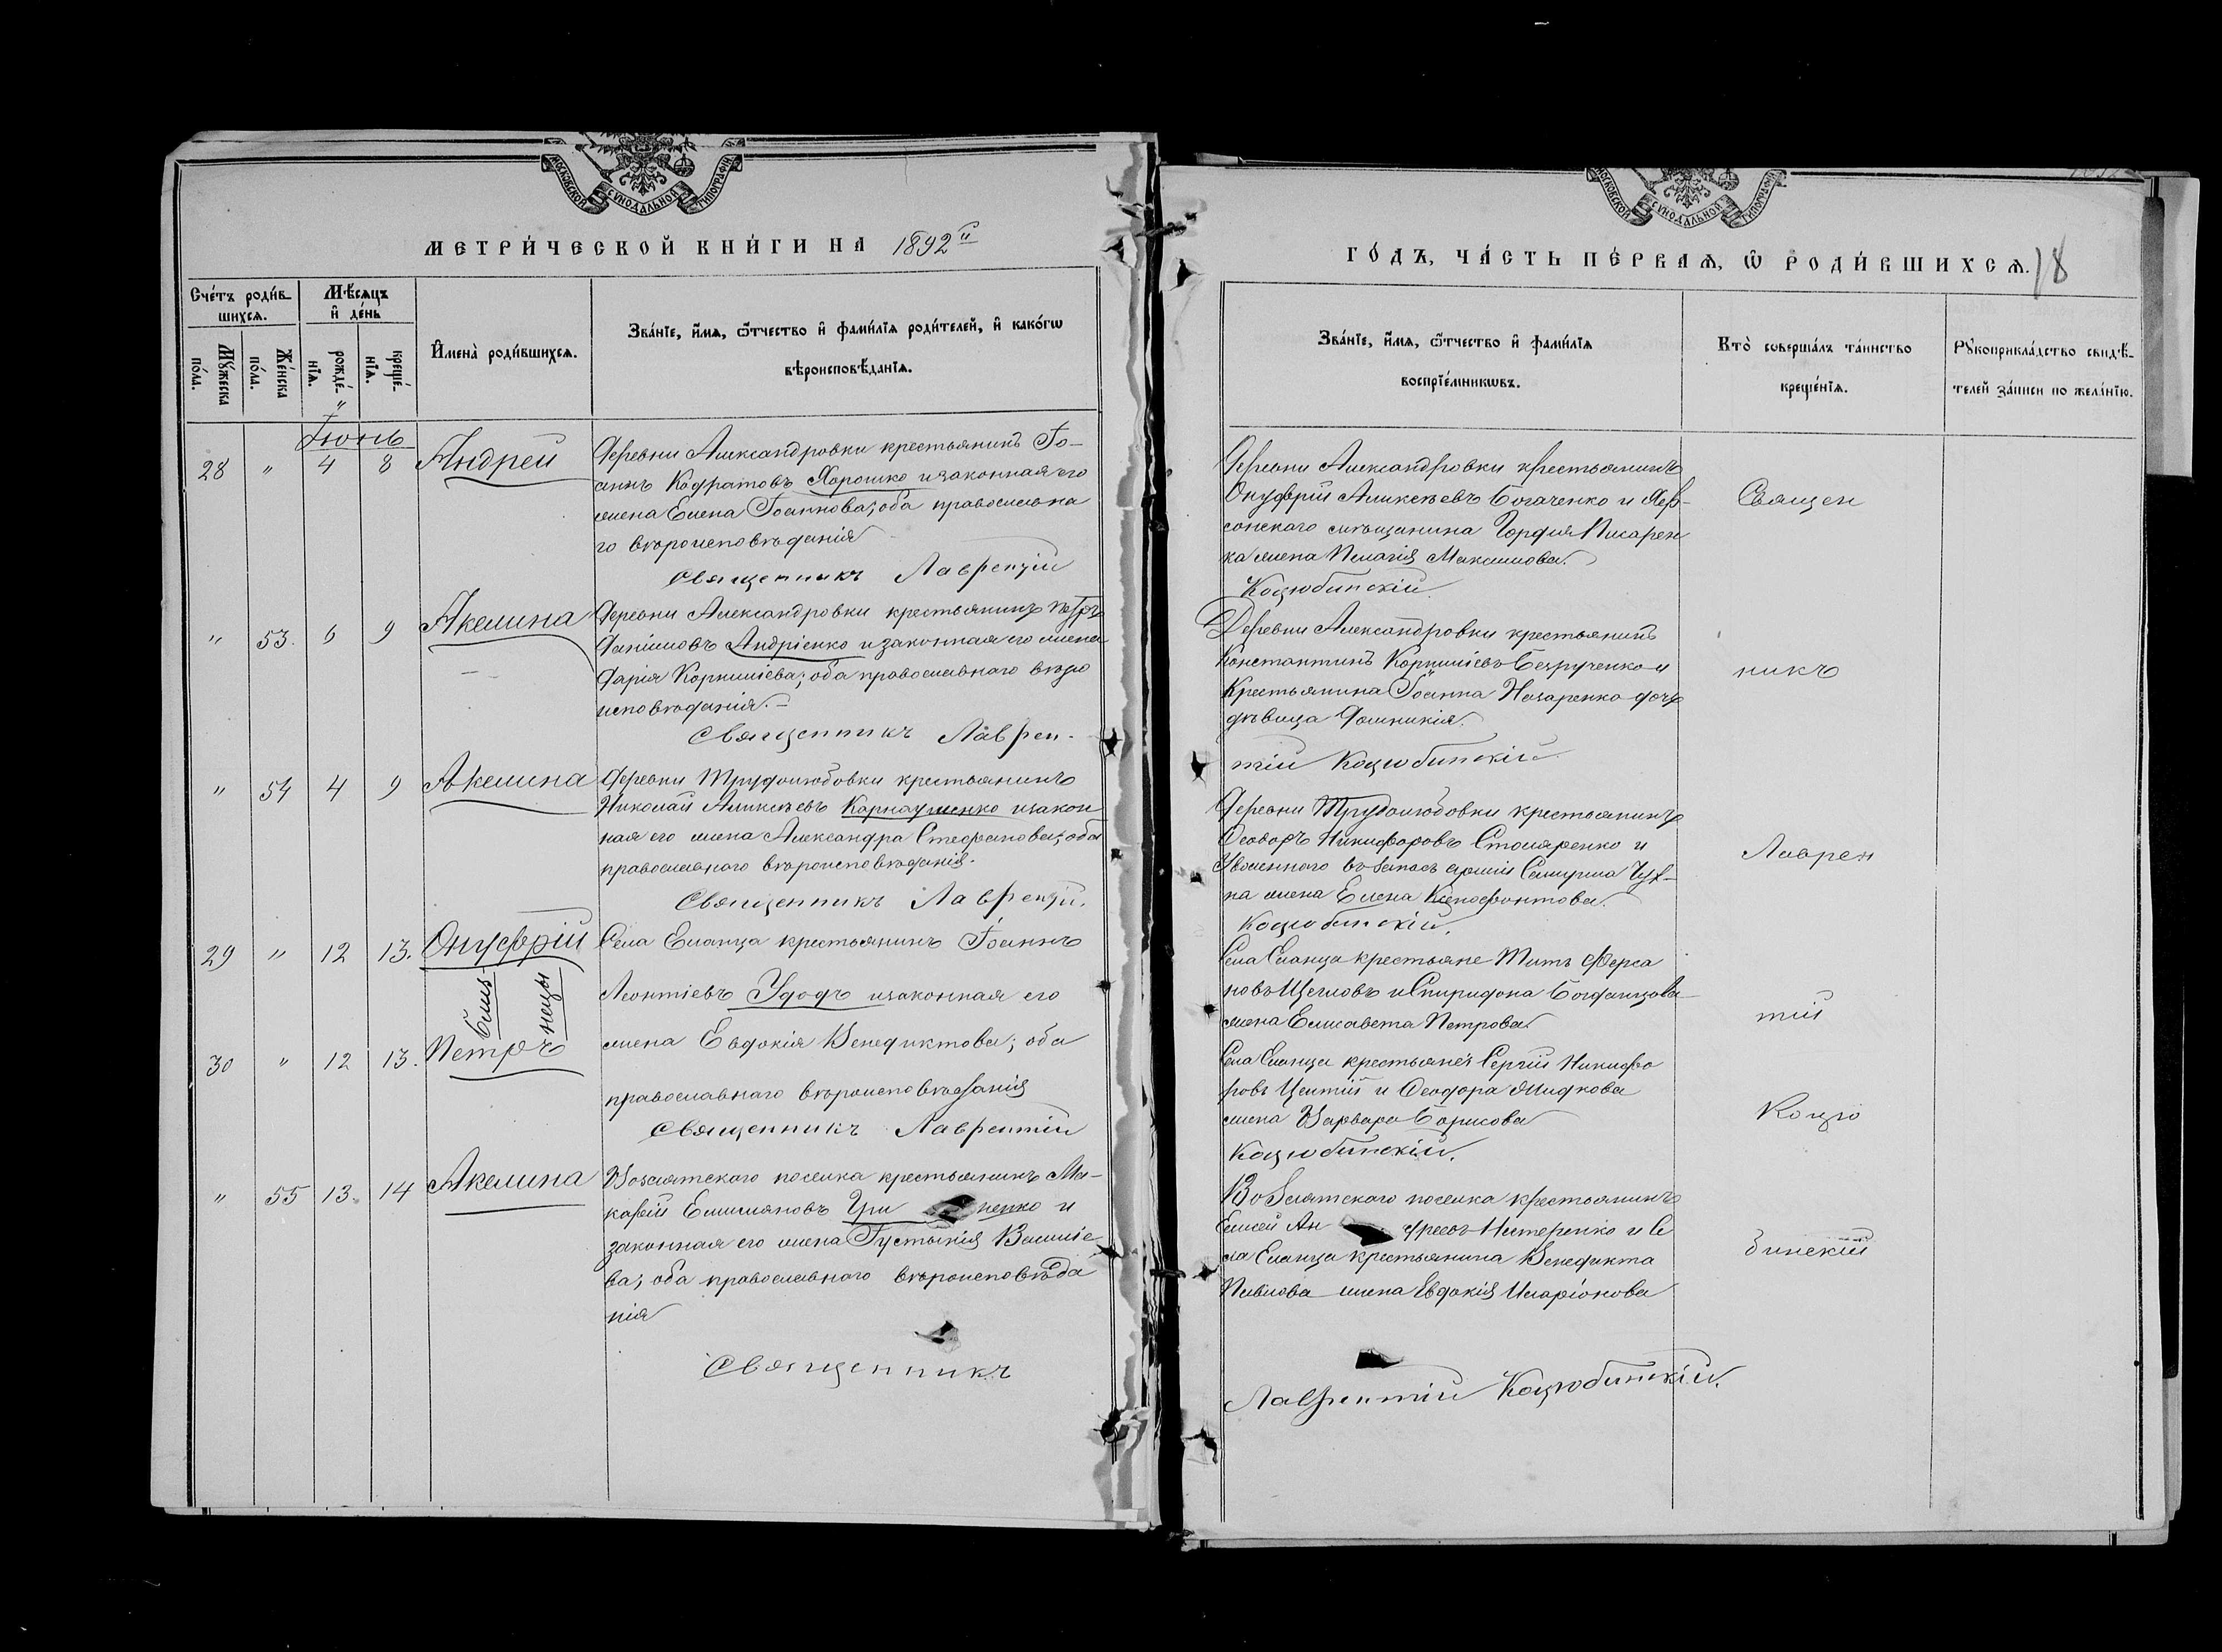 МОСКОВСКОЙ СѴНОДАЛЬНОЙ ТИПОГРАФІИ
МЕТРИ́ЧЕСКОЙ КНИ́ГИ НА 1892й
Сче́тъ роди́в-
шихсѧ.
Мѣ́сѧцъ
и҆ де́нь
Мꙋ́жеска
по́ла.
Же́нска
по́ла.
рожде́-
нїѧ.
креще́-
нїѧ.
И҆мена̀ роди́вшихсѧ.
Зва́нїе, и҆́мѧ, ѻ҆́тчество и҆ фами́лїѧ роди́телей, и҆ како́гѡ
вѣроисповѣ́данїѧ.
Іюнь
28 " 4 8 Андрей
Деревни Александровки крестьянинъ Іо-
аннъ Кодратовъ Хорошко и законная его
жена Елена Іоаннова; оба православна
го вѣроисповѣданія
Священникъ Лаврентій
" 53. 6 9 Акелина
Деревни Александровки крестьянинъ Петръ
Андріенко и законная его жена
Дарія Корниліева; оба православнаго вѣро
исповѣданія.-
Священникъ Лаврен-
" 54 4 9 Акелина
Деревни Трудолюбовки крестьянинъ
Николай Алексѣевъ Карнаушенко и закон
ная его жена Александра Стефанова; оба
православнаго вѣроисповѣданія.
Священникъ Лаврентій.
29 " 12 13. Онуфрій
близ
нецы
30 " 12 13. Петръ
Села Еланца крестьянинъ Іоаннъ
Леонтіевъ Удодъ и законная его
жена Евдокія Венедиктова; оба
православнаго вѣроисповѣданія
Священникъ Лаврентій
" 55 13. 14 Акелина
Возсіятскаго поселка крестьянинъ Ма-
карій Емиліановъ Гри ненко и
законная его жена Густинія Василіе
ва; оба православнаго вѣроисповѣда
нія
Священникъ
МОСКОВСКОЙ СѴНОДАЛЬНОЙ ТИПОГРАФІИ
ГО́ДЪ, ЧА́СТЬ ПЕ́РВАѦ, Ѡ҆ РОДИ́ВШИХСѦ. 18
Зва́нїе, и҆́мѧ, ѻ҆́тчество и҆ фами́лїѧ
воспрїе́мникѡвъ.
Кто̀ соверша́лъ та́инство
креще́нїѧ.
Рꙋкоприкла́дство свидѣ́-
телей за́писи по жела́нїю.
Деревни Александровки крестьянинъ
Онуфрій Алексѣевъ Богаченко и Хер-
сонскаго мѣщанина Гордія Писарен
ка жена Пелагія Максимова.
Коцюбинскій.
Деревни Александровки крестьянинъ
Константинъ Корниліевъ Безрученко и
Крестьянина Іоанна Назаренко дочь
дѣвица Домникія.
тій Коцюбинскій.
Деревни Трудолюбовки крестьянинъ
Ѳеодоръ Никифоровъ Столяренко и
Уволеннаго въ запасъ арміи
на жена Елена Ксенофонтова.
Коцюбинскій.
Села Еланца крестьяне Титъ Фирса
новъ Щегловъ и Спиридона Богданцова
жена Елисавета Петрова.
Села Еланца крестьяне: Сергій Никифо
ровъ и Ѳеодора Жидкова
жена Варвара Борисова
Коцюбинскій.
Возсіятскаго поселка крестьянинъ
Елисей Ан дреевъ Нестеренко и Се
ла Еланца крестьянина Венедикта
Павлова жена Евдокія Иларіонова
Лаврентій Коцюбинскій.
Священ
никъ
Лаврен
тій
Коцю
бинскій